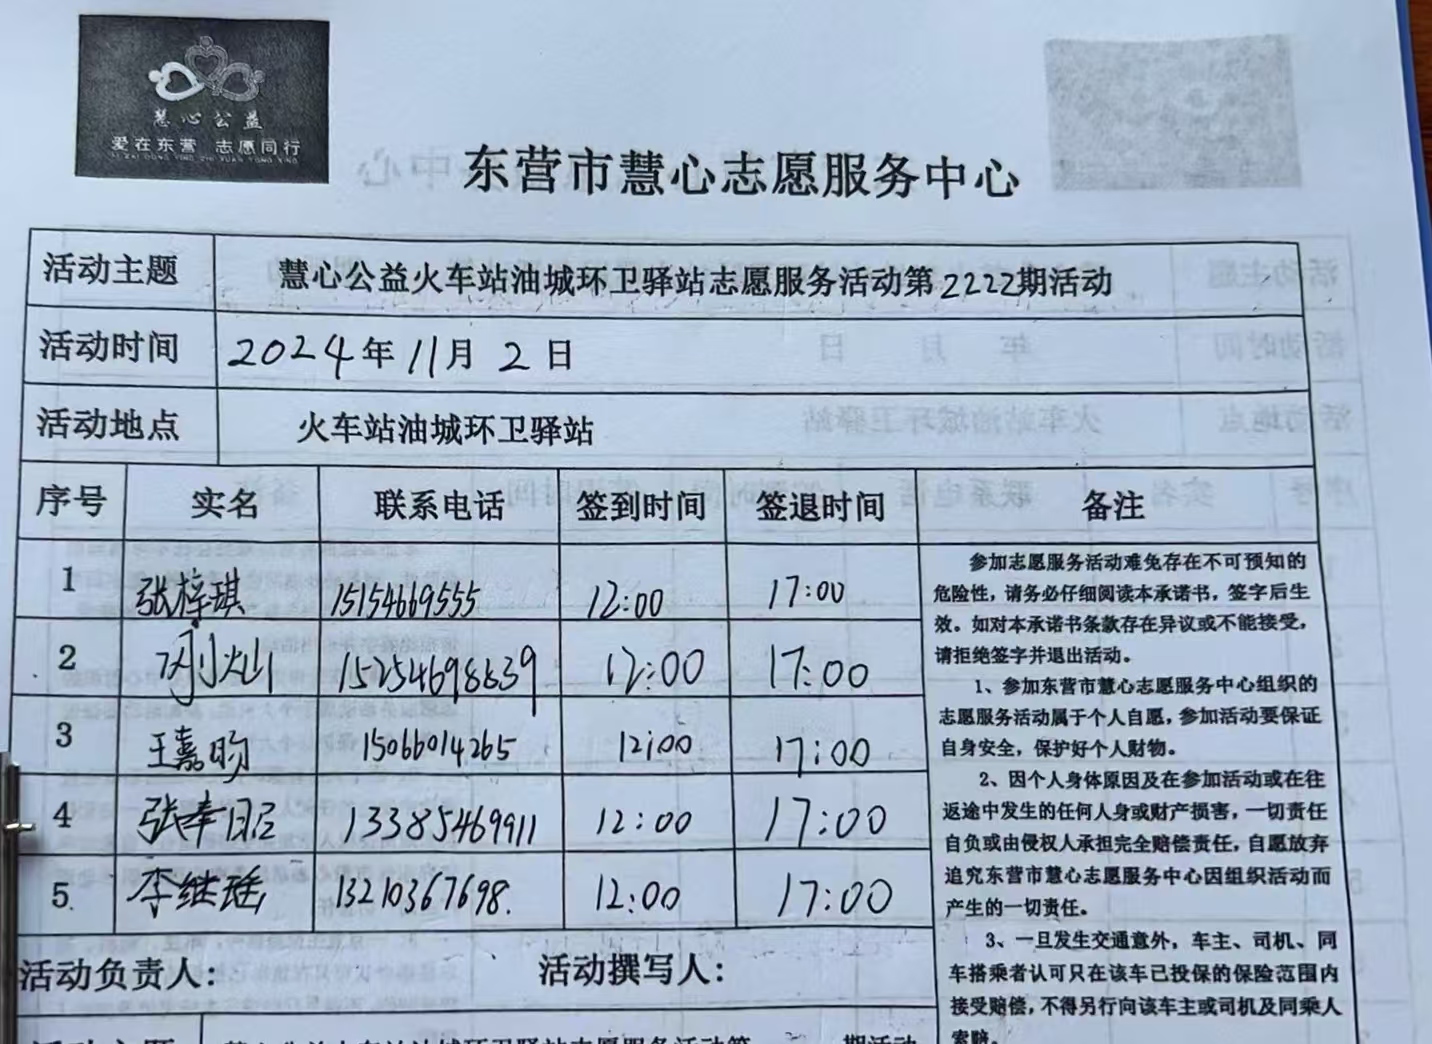 慧心公益
爱在东营 志愿同行
AI ZAI DONG YING ZHI YUAN TONG XING
东营市慧心志愿服务中心
活动主题 慧心公益火车站油城环卫驿站志愿服务活动第2222期活动
活动时间 2024年11月2日
活动地点 火车站油城环卫驿站
序号 实名 联系电话 签到时间 签退时间 备注
1 张梓琪 15154669555 12:00 17:00
2 15254698639 12:00 17:00
3 王嘉昀 15066014265 12:00 17:00
4 张 13385469911 12:00 17:00
5. 李继瑶 13210367698. 12:00 17:00
参加志愿服务活动难免存在不可预知的
危险性，请务必仔细阅读本承诺书，签字后生
效。如对本承诺书条款存在异议或不能接受，
请拒绝签字并退出活动。
1、参加东营市慧心志愿服务中心组织的
志愿服务活动属于个人自愿，参加活动要保证
自身安全，保护好个人财物。
2、因个人身体原因及在参加活动或在往
返途中发生的任何人身或财产损害，一切责任
自负或由侵权人承担完全赔偿责任，自愿放弃
追究东营市慧心志愿服务中心因组织活动而
产生的一切责任。
3、一旦发生交通意外，车主、司机、同
车搭乘者认可只在该车已投保的保险范围内
接受赔偿，不得另行向该车主或司机及同乘人
索赔。
活动负责人： 活动撰写人：
活动主题 慧心公益火车站油城环卫驿站志愿服务活动第 期活动